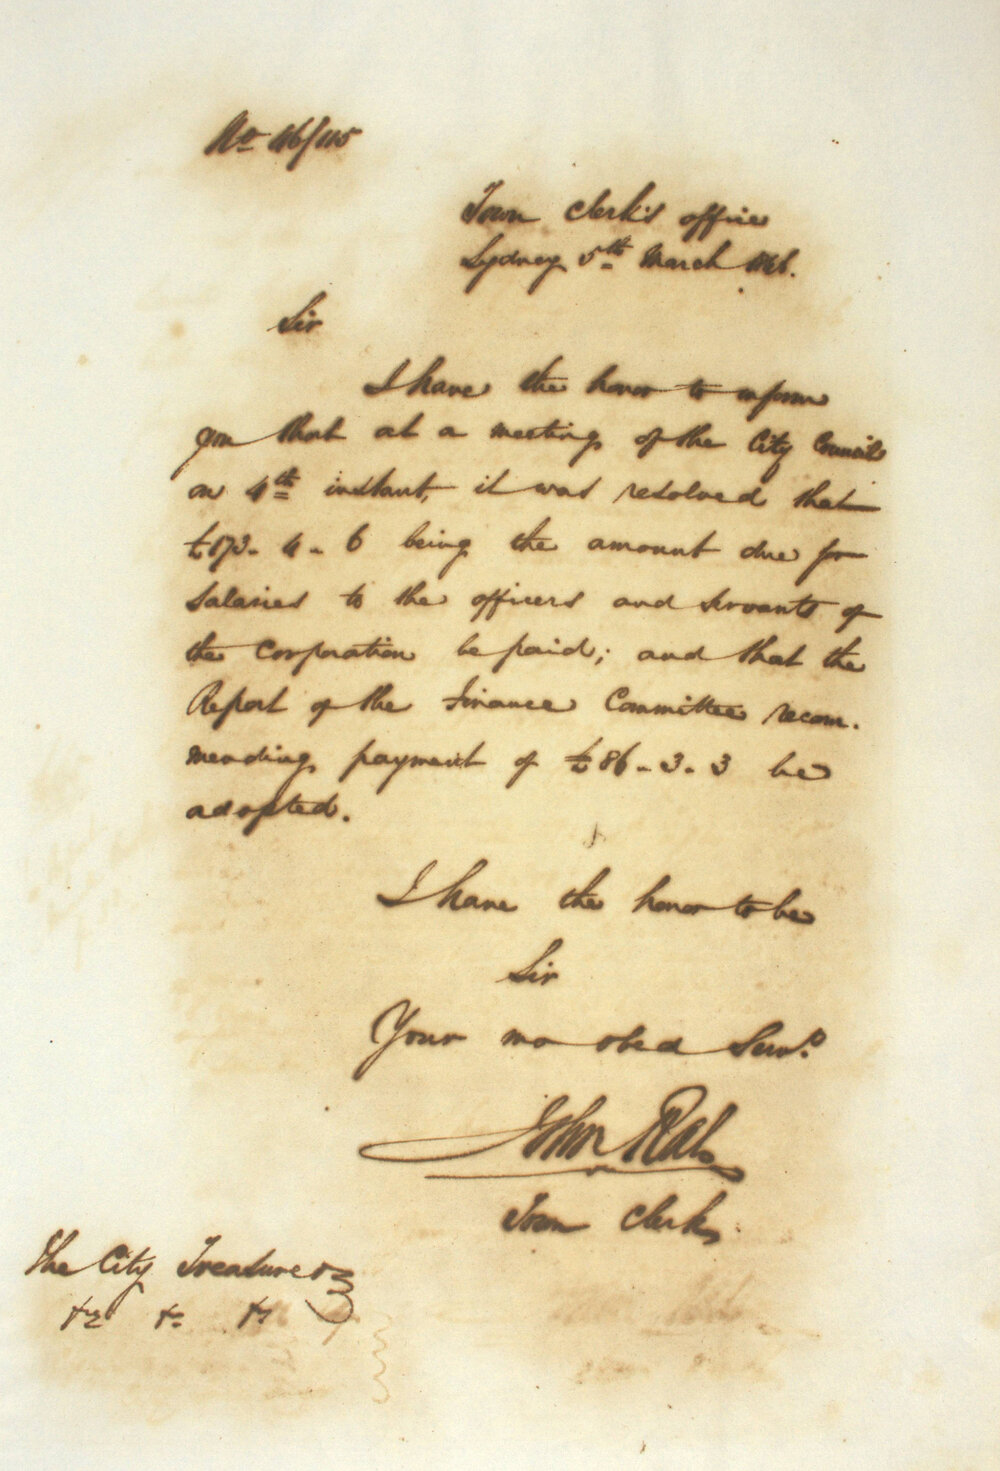 No 46/115
Town Clerk's office
Sydney 5th March 1846.
Sir
I have the honor to inform
you that at a meeting of the City Council
on 4th instant, it was resolved that
£173 - 4 - 6 being the amount due for
salaries to the officers and servants of
the Corporation be paid; and that the
Report of the Finance Committee recom-
mending payment of £86 - 3 - 3 be
adopted.
I have the honor to be
Sir
Your mo obed Servt
John Rae
Town Clerk
The City Treasurer
&c &c &c